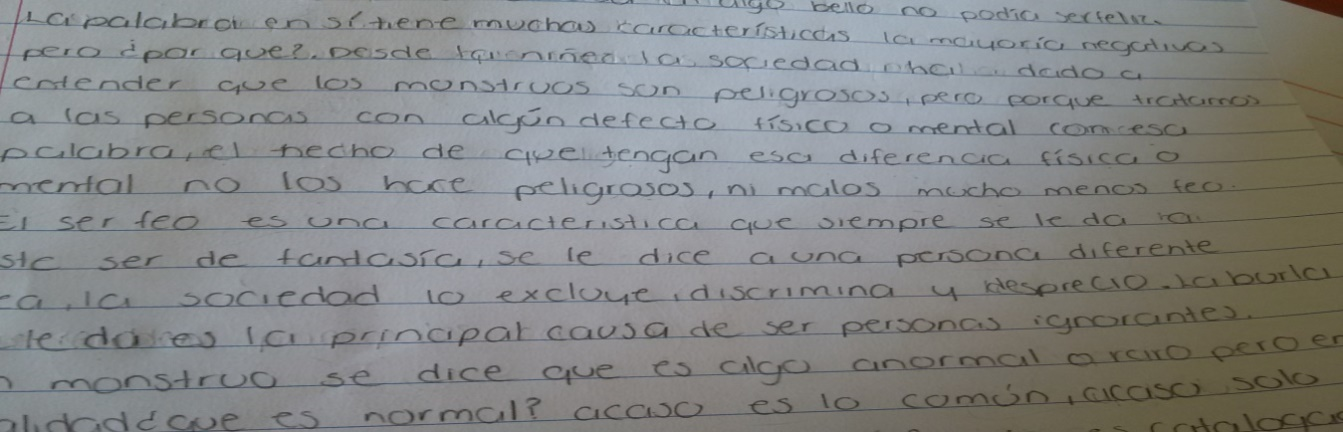 algo bello no podia ser feliz.
La palabra en sí tiene muchas características la mayoría negativas
pero ¿por que?. Desde la sociedad ha dado a
entender que los monstruos son peligrosos, pero porque tratamos
a las personas con algún defecto físico o mental con esa
palabra, el hecho de que tengan esa diferencia física o
mental no los hace peligrosos, ni malos mucho menos feo.
El ser feo es una caracteristica que siempre se le da a
ser de fantasía, se le dice a una persona diferente
la sociedad lo excluye, discrimina y desprecio. La burla
le da es la principal causa de ser personas ignorantes.
monstruo se dice que es algo anormal o raro pero en
que es normal? acaso es lo común, acaso solo